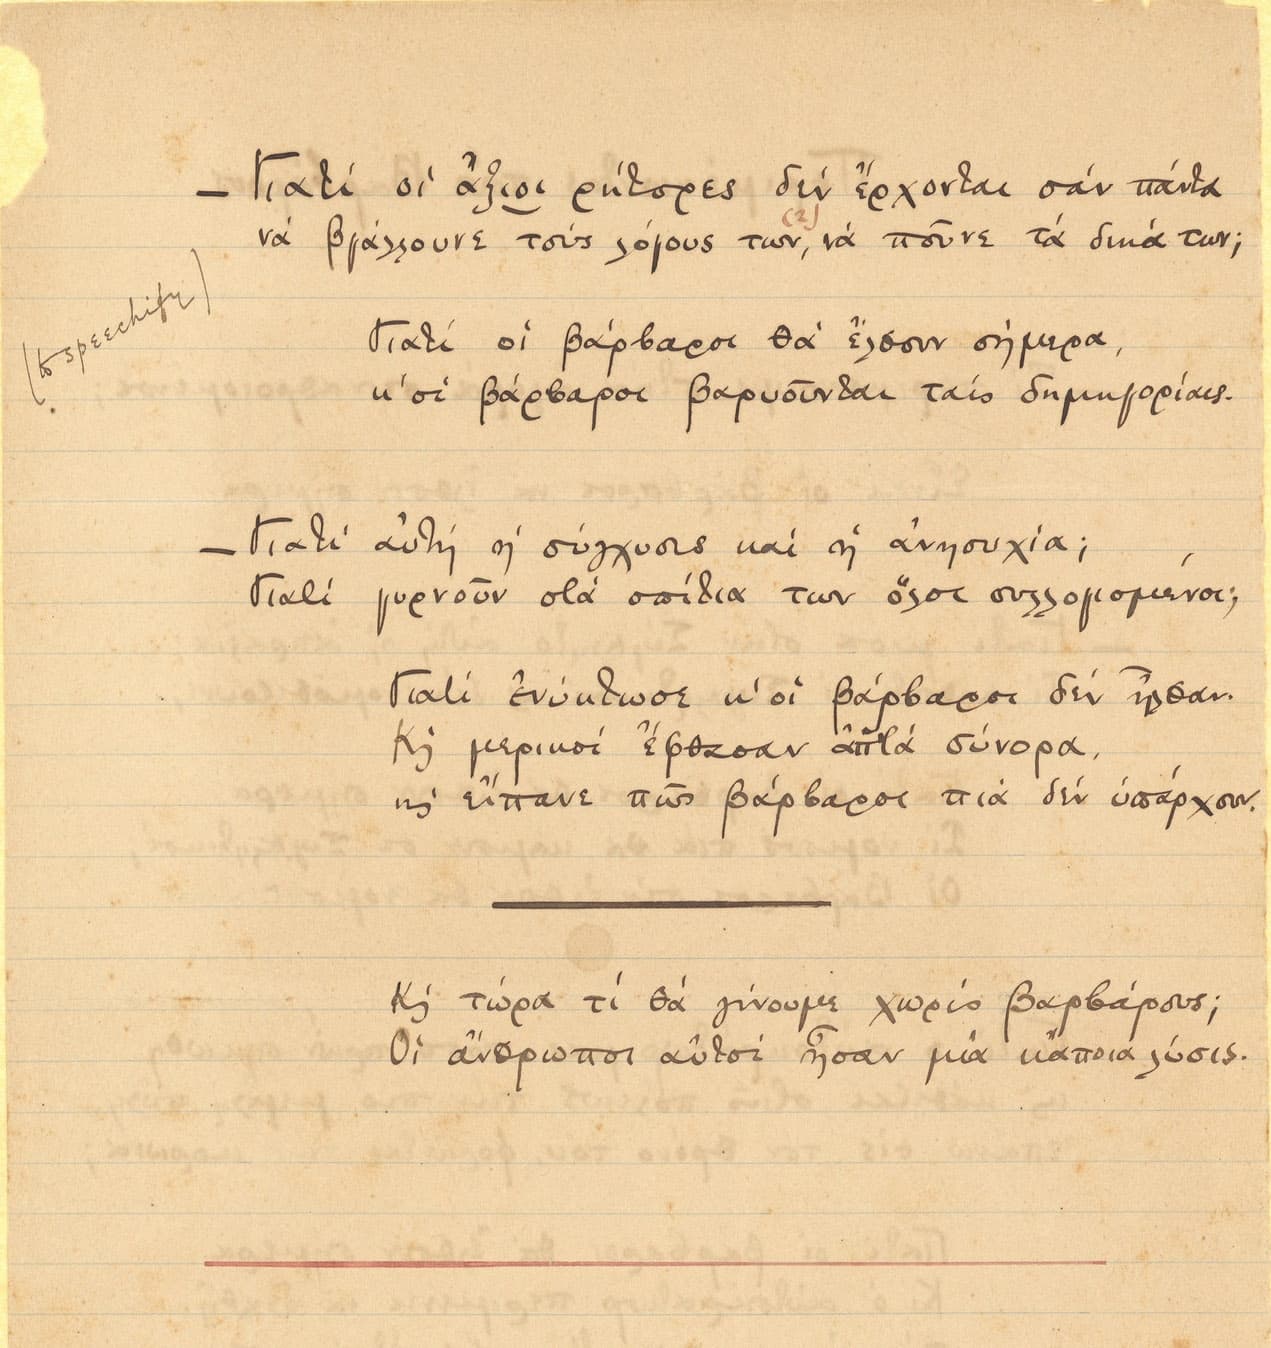 — Γιατί οἱ ἄξιοι ρήτορες δέν ἔρχονται σάν πάντα
νά βγάλλουνε τούς λόγους των, (2) νά ποῦνε τά δικά των;
(to speechify)
Γιατί οἱ βάρβαροι θά ἔλθουν σήμερα,
κ' οἱ βάρβαροι βαρυοῦνται ταίς δημηγορίαις.
— Γιατί αὐτή ἡ σύγχυσις καί ἡ ἀνησυχία;
Γιατί γυρνοῦν στά σπίτια των ὅλοι συλλογισμένοι;
Γιατί ἐνύκτωσε κ' οἱ βάρβαροι δέν ἦλθαν.
Κι μερικοί ἔφθασαν ἀπ' τά σύνορα,
κι εἴπανε πῶς βάρβαροι πιά δέν ὑπάρχουν.
Κι τώρα τί θά γίνουμε χωρίς βαρβάρους;
Οἱ ἄνθρωποι αὐτοί ἦσαν μιά κἄποια λύσις.